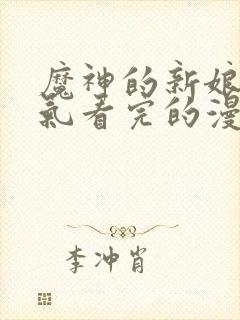 魔神的新娘
氣看完的漫
李冲肖